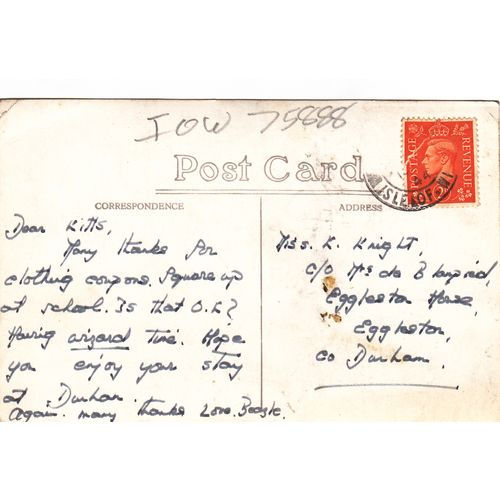 IOW 75888
Post Card
CORRESPONDENCE
ADDRESS
POSTAGE REVENUE
ISLE OF WI
Dear Kitts,
Many thanks for
clothing coupons. Square up
at school. Is that O.K?
Having wizard time. Hope
you enjoy your stay
at Durham.
Again many thanks Love
Miss. K. Knight,
c/o Mrs de B
Eggleston House,
Eggleston,
Co Durham.